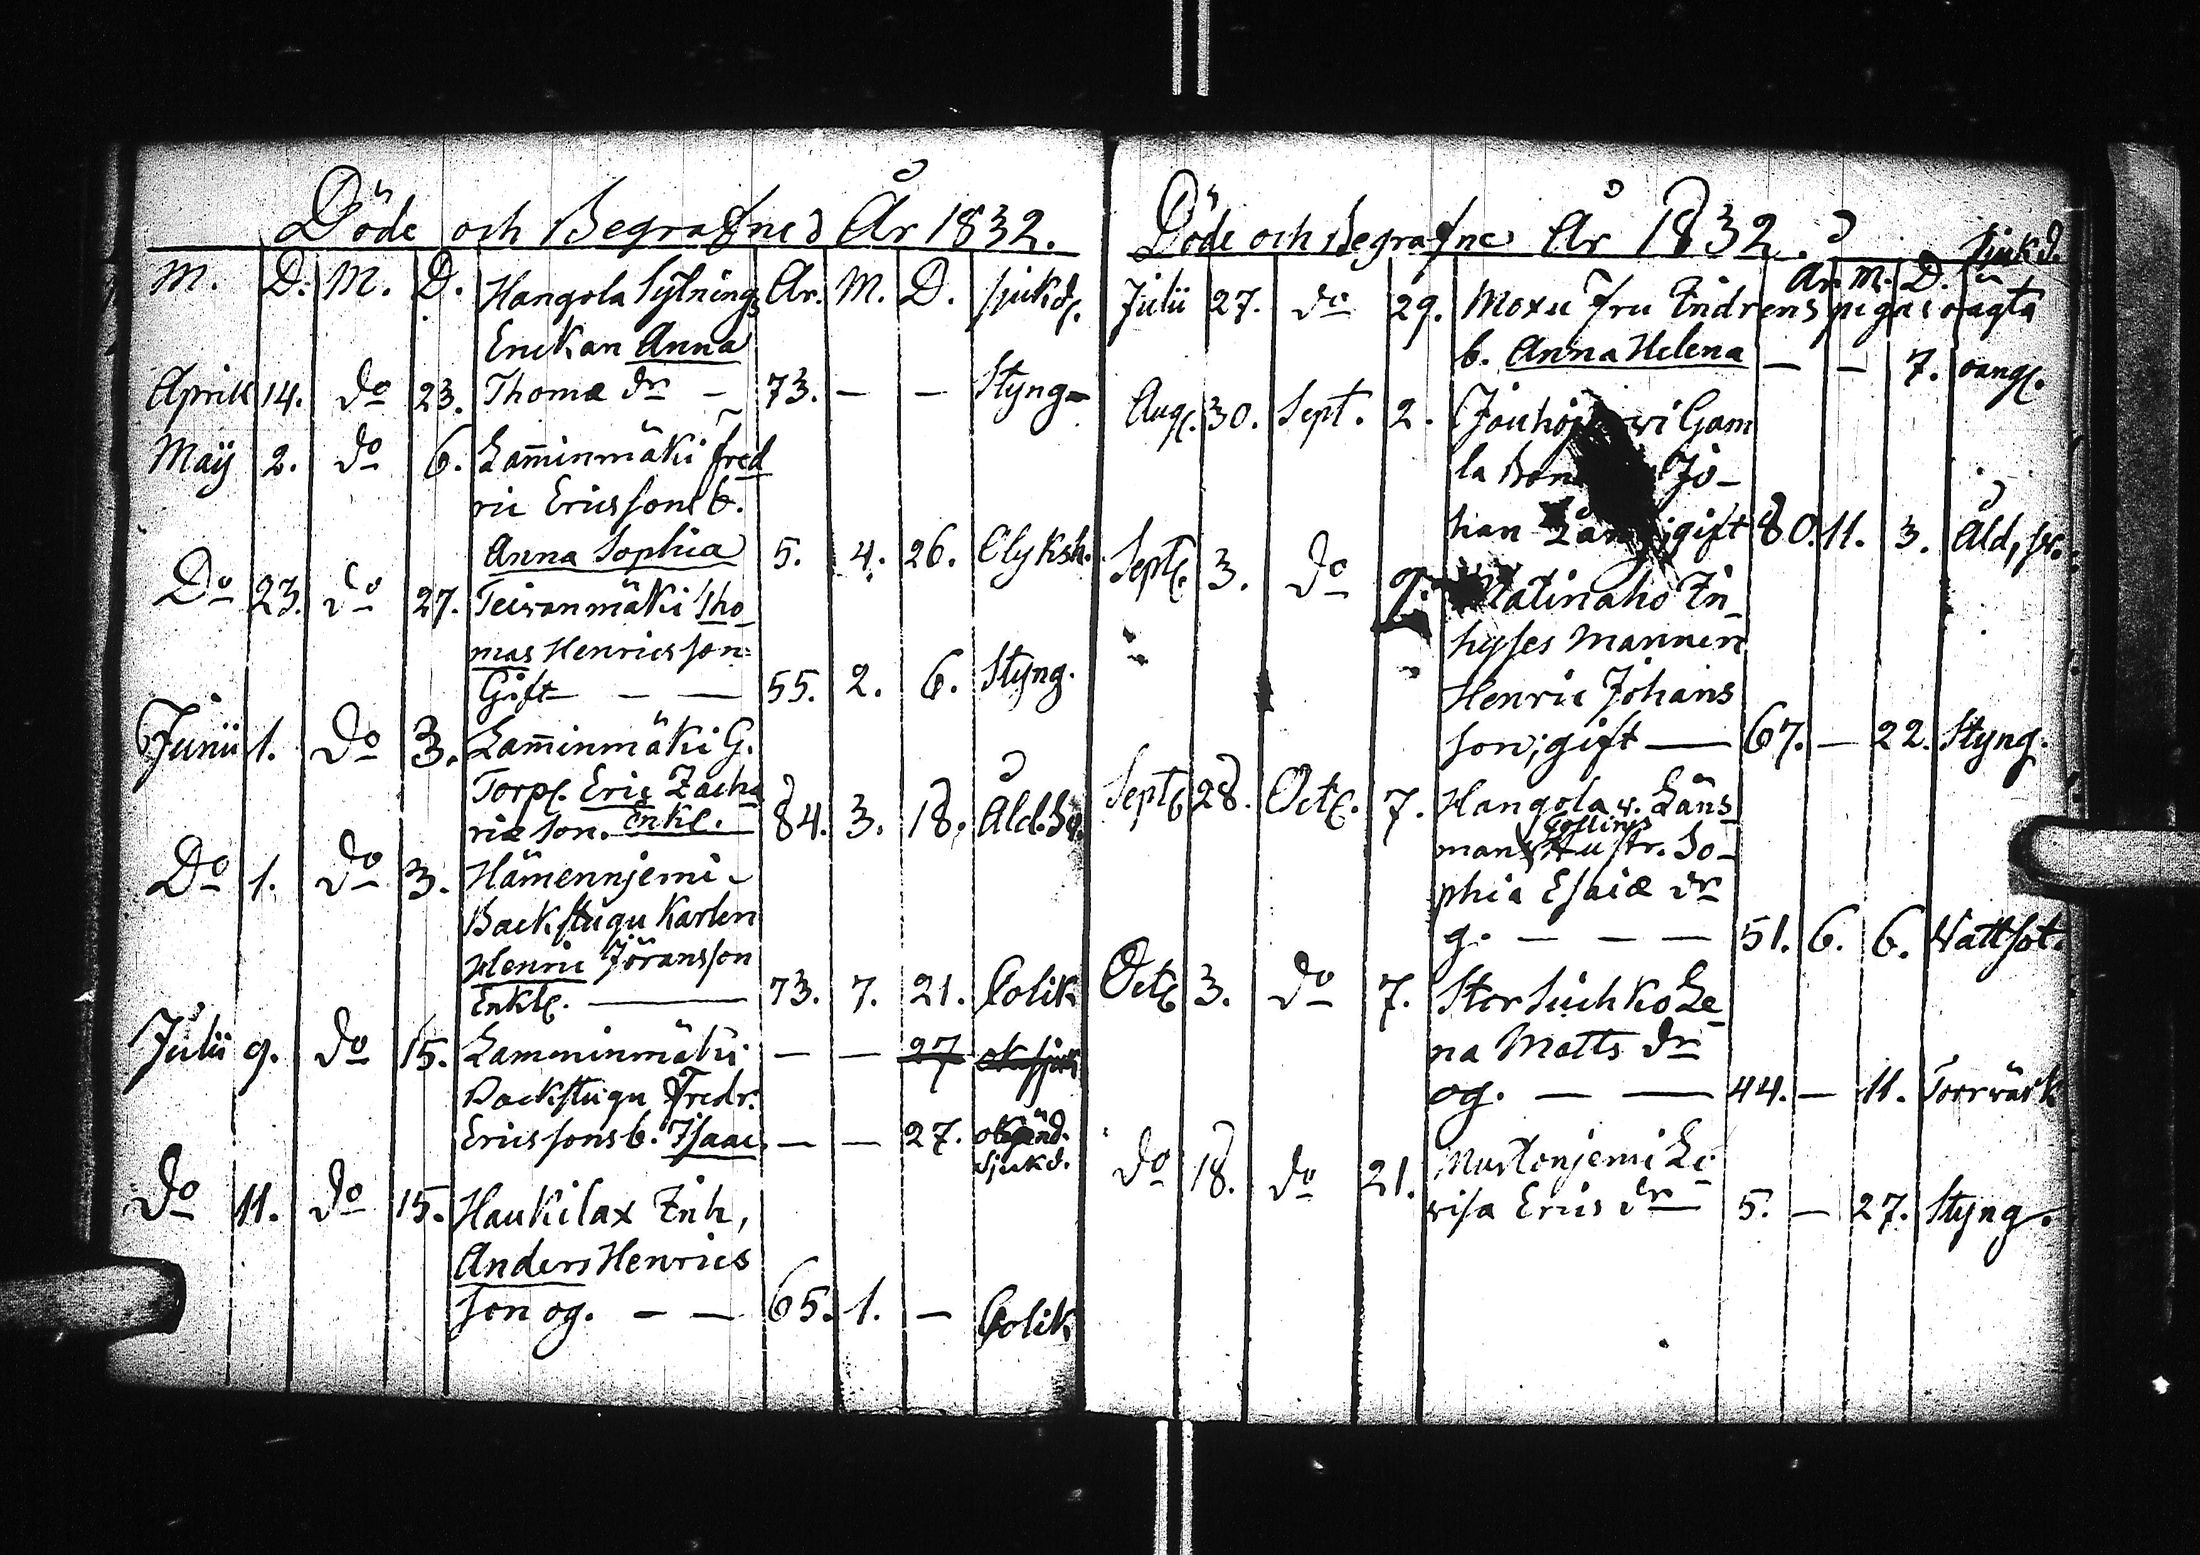 Döde och Begrafne År 1832.
M. D. M. D. Hangola Sytnings År. M. D. sjukd.
Enckan Anna
Aprill 14. do 23. Thomæ dr – 73. – – Styng
Maÿ 2. do 6. Lam̄inmäki Fred
ric Ericssons b.
Anna Sophia 5. 4. 26. Olyksh.
Do 23. do 27. Teiwanmäki Tho
mas Henricsson
Gift – — 55. 2. 6. Styng.
Junii 1. do 3. Lam̄inmäki G.
Torp. Eric Zacha
riæ son. Enkl. 84. 3. 18. Åld. Sv.
Do 1. do 3. Hämennjemi
Backstugu Karlen
Henric Jöransson
Enkl. — 73. 7. 21. Colik
Julii 9. do 15. Lamminmäki – – 27
Backstugu Fredr.
Ericssons b. Isaac – – 27. okänd.
Sjukd.
Do 11. do 15. Haukilax Inh,
Anders Henrics
son og. – – 65. 1. – Colik
Döde och Begrafne År 1832.
År. M. D. Sjukd.
Julii 27. do 29. Moxu Fru Indrens pigas oägta
b. Anna Helena – – 7. oang.
Aug. 30. Sept. 2. Gam
la Jo-
han gift 80. 11. 3. Åld, sv.
Sept. 3. do 9. Matinaho In-
hyses Mannen
Henric Johans
son; gift — 67. – 22. Styng.
Sept. 28. Oct. 7. Hangola v. Läns
mans Collins Hustr. So-
phia Esaiæ dr
g. – – – 51. 6. 6. Wattsot.
Oct. 3. do 7. Stor Suihko Le
na Matts dr
og. – — 44. – 11. Torrvärk
do 18. do 21. Mustonjemi Lo
visa Erics dr 5. – 27. Styng.